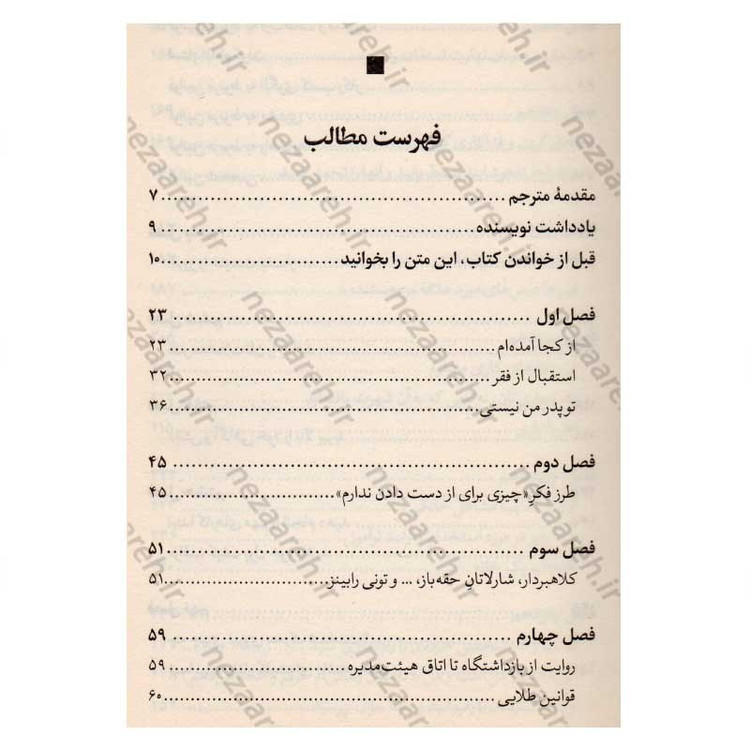 فهرست مطالب
مقدمهٔ مترجم ........ ۷
یادداشت نویسنده ........ ۹
قبل از خواندن کتاب، این متن را بخوانید ........ ۱۰
فصل اول ........ ۲۳
از کجا آمده‌ام ........ ۲۳
استقبال از فقر ........ ۳۲
تو پدر من نیستی ........ ۳۶
فصل دوم ........ ۴۵
طرز فکرِ «چیزی برای از دست دادن ندارم» ........ ۴۵
فصل سوم ........ ۵۱
کلاهبردار، شارلاتانِ حقه‌باز، ... و تونی رابینز ........ ۵۱
فصل چهارم ........ ۵۹
روایت از بازداشتگاه تا اتاق هیئت‌مدیره ........ ۵۹
قوانین طلایی ........ ۶۰
nezaareh.ir